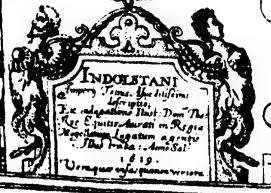 INDOLSTANI
Imperij Totius Asiæ ditissimi
descriptio;
Ex indagatione Illust: Dom: Tho:
Roe Equitis Aurati in Regia
Mogollanica Legatum agentis
Illustrata: Anno Sal:
1619.
Vera quae visa; quae non veriora